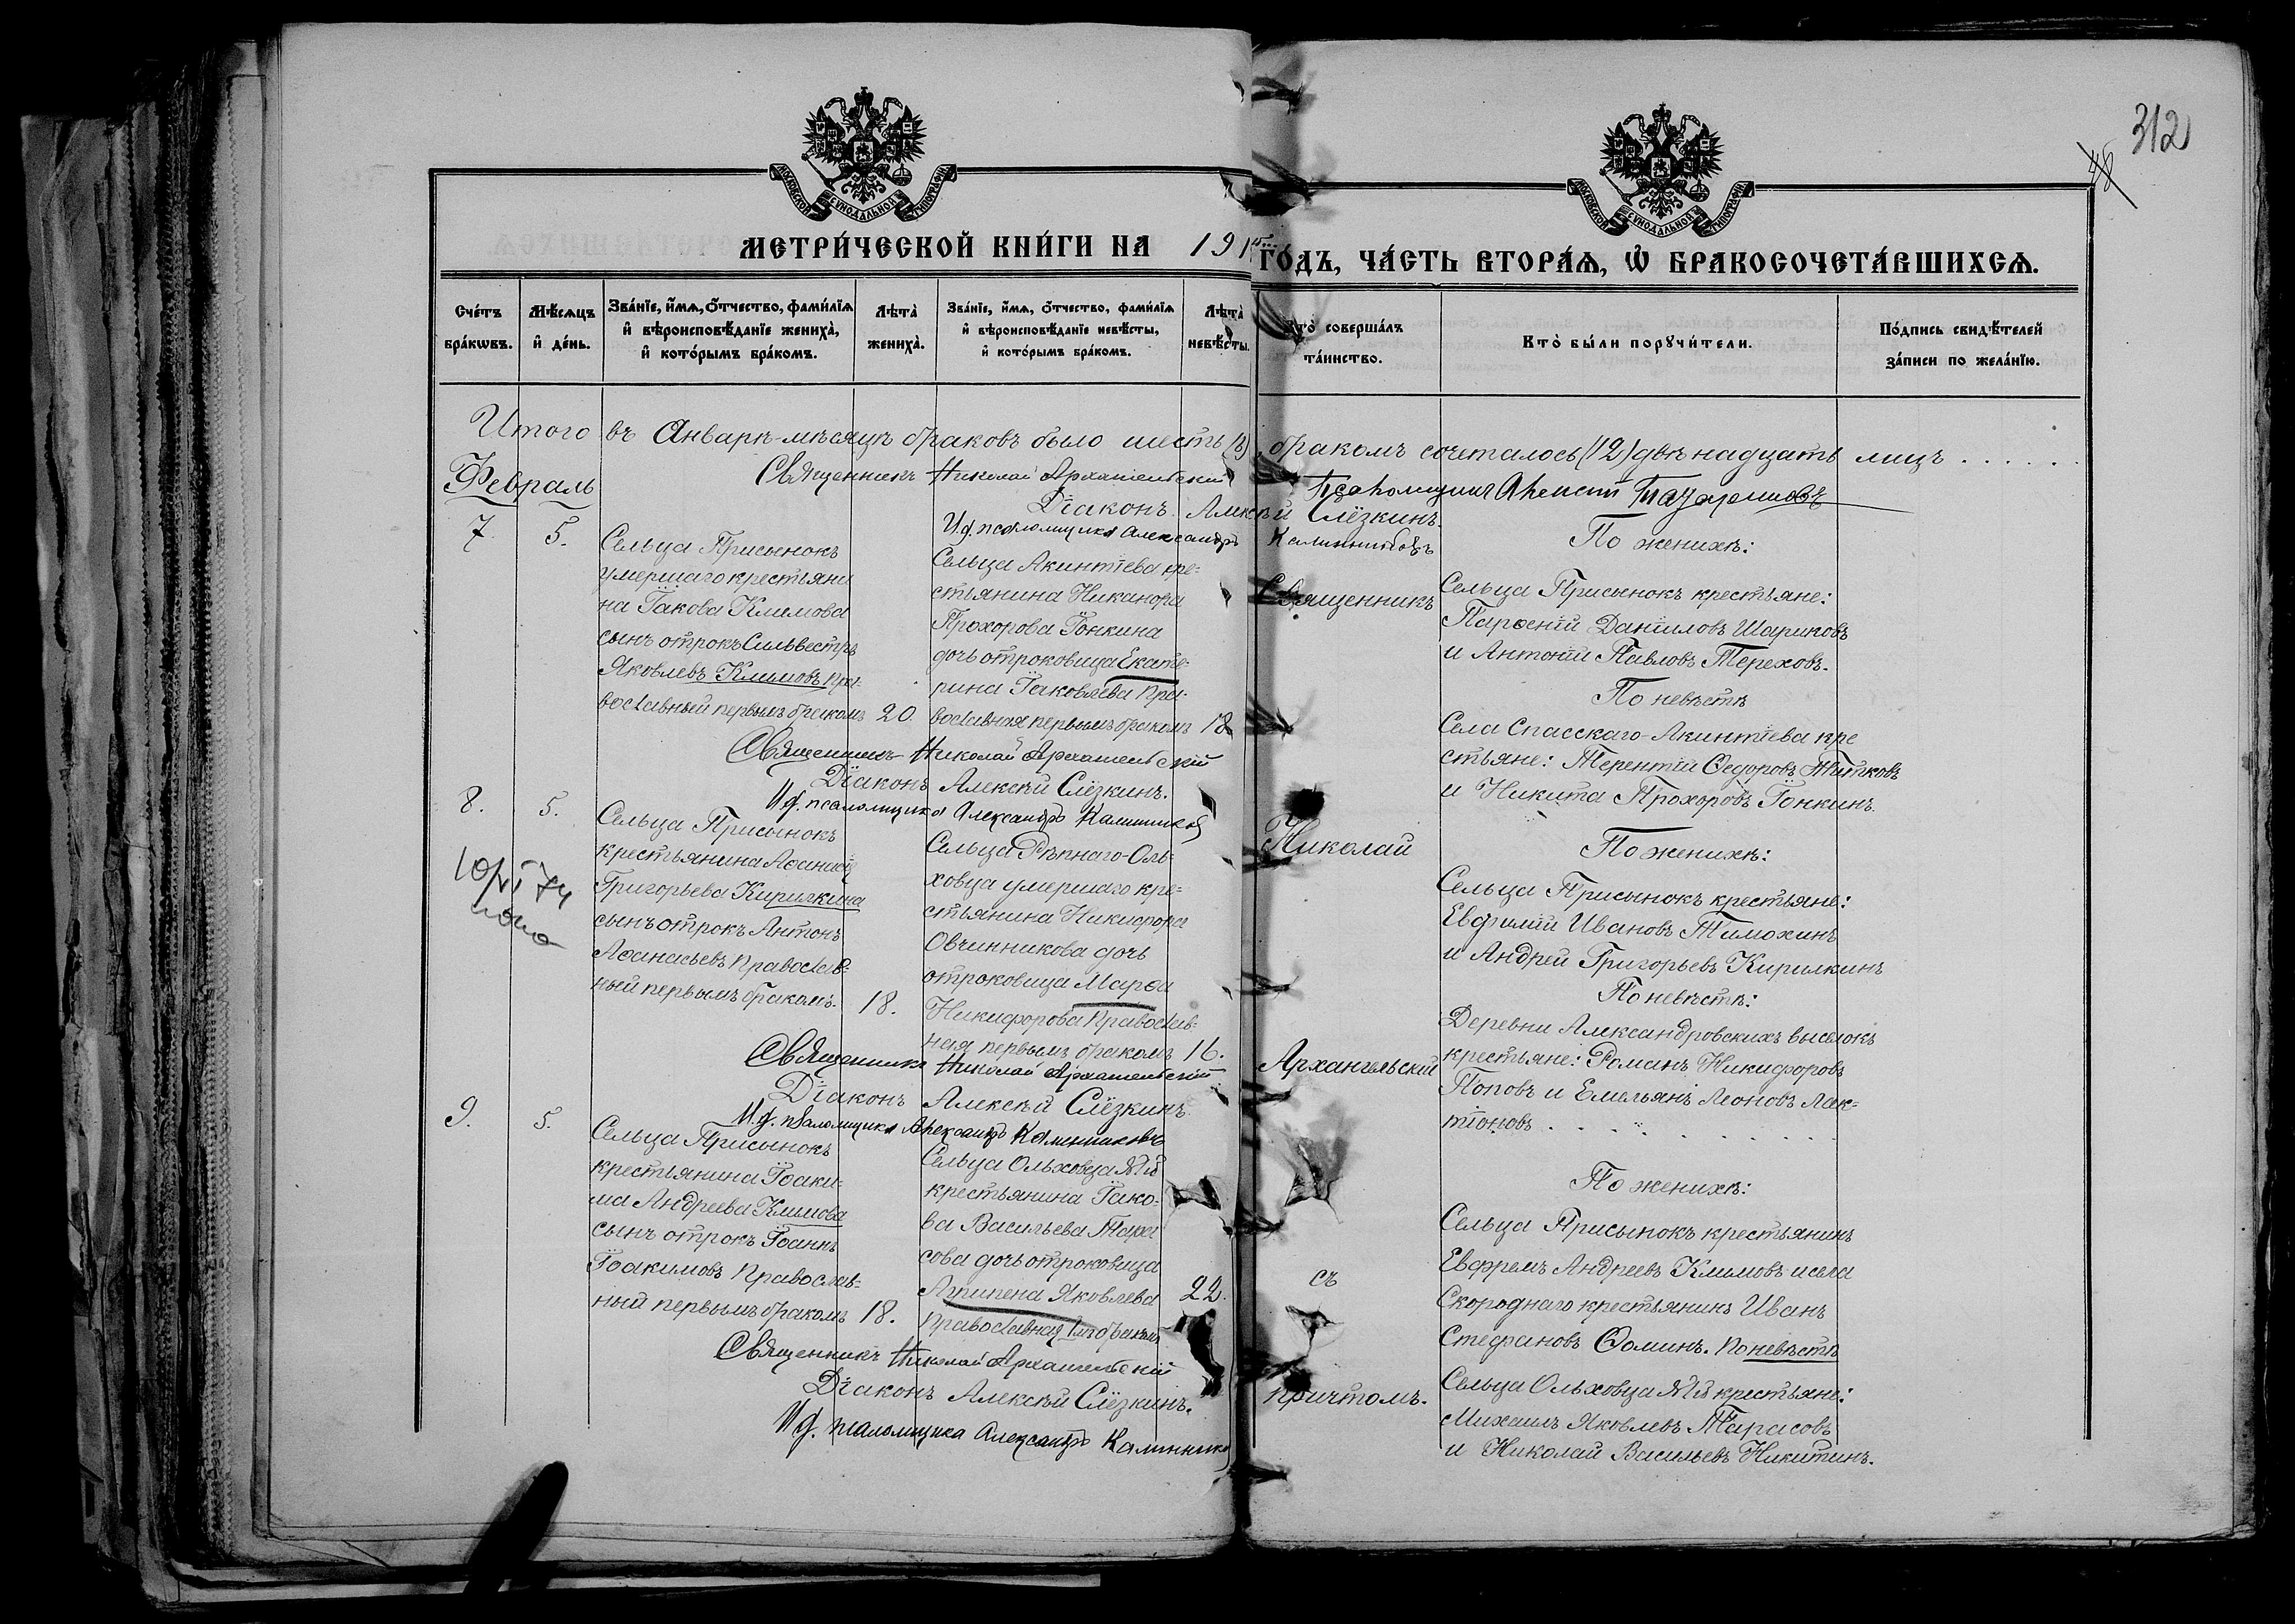 312
МОСКОВСКОЙ СѴНОДАЛЬНОЙ ТИПОГРАФІИ
МОСКОВСКОЙ СѴНОДАЛЬНОЙ ТИПОГРАФІИ
МЕТРИ́ЧЕСКОЙ КНИ́ГИ НА 191
ГО́ДЪ, ЧА́СТЬ ВТОРА́Ѧ, Ѽ БРАКОСОЧЕТА́ВШИХСѦ.
Сче́тъ бра́кѡвъ.
Мѣ́сѧцъ и҆ де́нь.
Зва́нїе, и҆́мѧ, ѻ҆́тчество, фами́лїѧ и҆ вѣроисповѣ́данїе жениха̀, и҆ кото́рымъ бра́комъ.
Лѣта̀ жениха̀.
Зва́нїе, и҆́мѧ, ѻ҆́тчество, фами́лїѧ и҆ вѣроисповѣ́данїе невѣ́сты, и҆ кото́рымъ бра́комъ.
Лѣта̀ невѣ́сты.
Кто̀ соверша́лъ та́инство.
Кто̀ бы́ли порꙋчи́тели.
По́дпись свидѣ́телей за́писи по жела́нїю.
Итого въ Январѣ-мѣсяцѣ браковъ было шесть
бракомъ сочеталось (12) двѣнадцать лицъ . . . . .
Священникъ Николай Архангельскій
Псаломщикъ Алексѣй
Февраль
Діаконъ Алексѣй Слёзкинъ.
И.д. псаломщика Александръ Калинниковъ
7. 5.
Сельца Присынокъ
умершаго крестьяни
на Іакова Климова
сынъ отрокъ Сильвестръ
Яковлевъ Климовъ пра-
вославный первымъ бракомъ 20.
Сельца Акинтіева кре-
стьянина Никанора
Прохорова Гонкина
дочь отроковица Екате-
рина Іаковлева пра-
вославная первымъ бракомъ 18
Священникъ
По женихѣ:
Сельца Присынокъ крестьяне:
Парѳеній Даніиловъ Шариковъ
и Антоній Павловъ Тереховъ.
По невѣстѣ
Села Спасскаго-Акинтіева кре
стьяне: Терентій Ѳедоровъ Титковъ
и Никита Прохоровъ Гонкинъ.
Священникъ Николай Архангельскій
Діаконъ Алексѣй Слёзкинъ.
И.д. псаломщика Александръ Калинников
8. 5.
Сельца Присынокъ
крестьянина Аѳанасія
Григорьева Кирилкина
сынъ отрокъ Антонъ
Аѳанасьевъ православ-
ный первымъ бракомъ. 18.
Сельца Рѣпнаго-Оль-
ховца умершаго кре-
стьянина Никифора
Овчинникова дочь
отроковица Марѳа
Никифорова православ-
ная первымъ бракомъ 16.
Николай
По женихѣ:
Сельца Присынокъ крестьяне:
Евфимій Ивановъ Тимохинъ
и Андрей Григорьевъ Кирилкинъ
По невѣстѣ:
Деревни Александровскихъ выселокъ
крестьяне: Романъ Никифоровъ
Поповъ и Емельянъ Леоновъ Лак-
тіоновъ . . . . . . . . .
Архангельскій
Священникъ Николай Архангельскій
Діаконъ Алексѣй Слёзкинъ
И.д. псаломщика Александръ Калинниковъ
9. 5.
Сельца Присынокъ
крестьянина Іоаки-
ма Андреева Климова
сынъ отрокъ Іоаннъ
Іоакимовъ православ-
ный первымъ бракомъ 18.
крестьянина Іако-
ва Васильева Тара
сова дочь отроковица
Агрипена Яковлева 22.
православная 1мъ бракомъ
съ
причтомъ.
По женихѣ:
Сельца Присынокъ крестьянинъ
Евфремъ Андреевъ Климовъ и села
Скороднаго крестьянинъ Иванъ
Стефановъ Ѳоминъ. По невѣстѣ
Михаилъ Яковлевъ Тарасовъ
и Николай Васильевъ Никитинъ.
Священникъ Николай Архангельскій
Діаконъ Алексѣй Слёзкинъ.
И.д. псаломщика Александръ Калинников